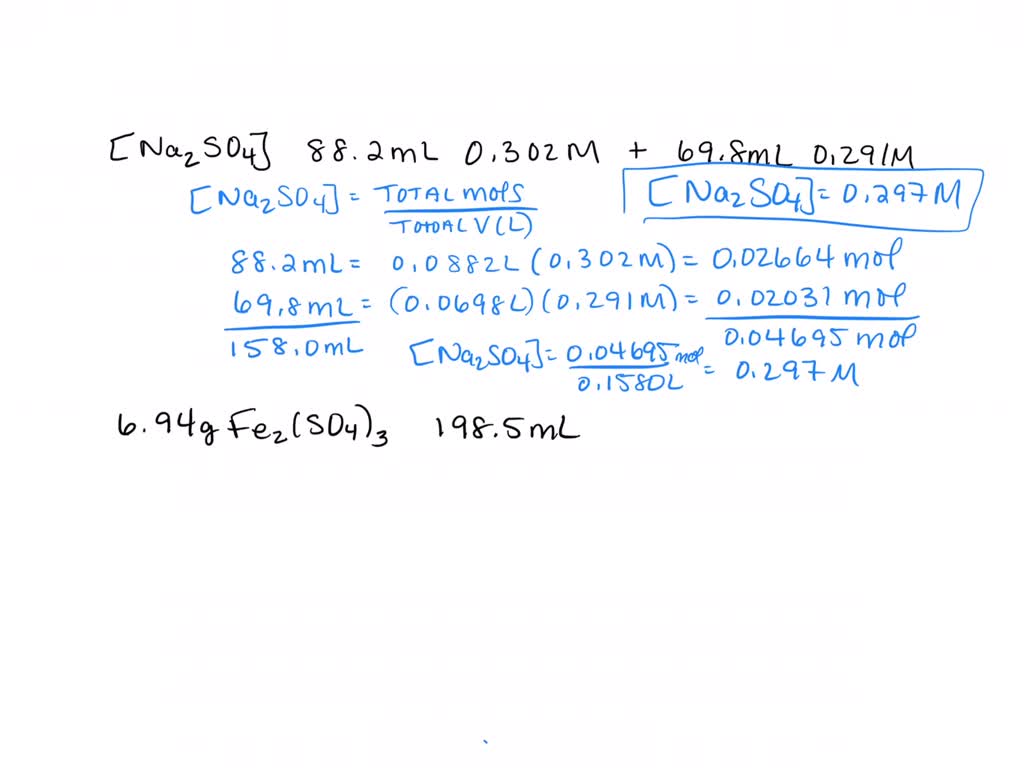 [Na₂SO₄] 88.2mL 0.302M + 69.8mL 0.291M
[Na₂SO₄] = TOTAL mols / TOTAL V(L)
[Na₂SO₄] = 0.297M
88.2mL = 0.0882L (0.302M) = 0.02664 mol
69.8mL = (0.0698L)(0.291M) = 0.02031 mol
158.0mL
0.04695 mol
[Na₂SO₄] = 0.04695 mol / 0.1580L = 0.297 M
6.94g Fe₂(SO₄)₃ 198.5mL